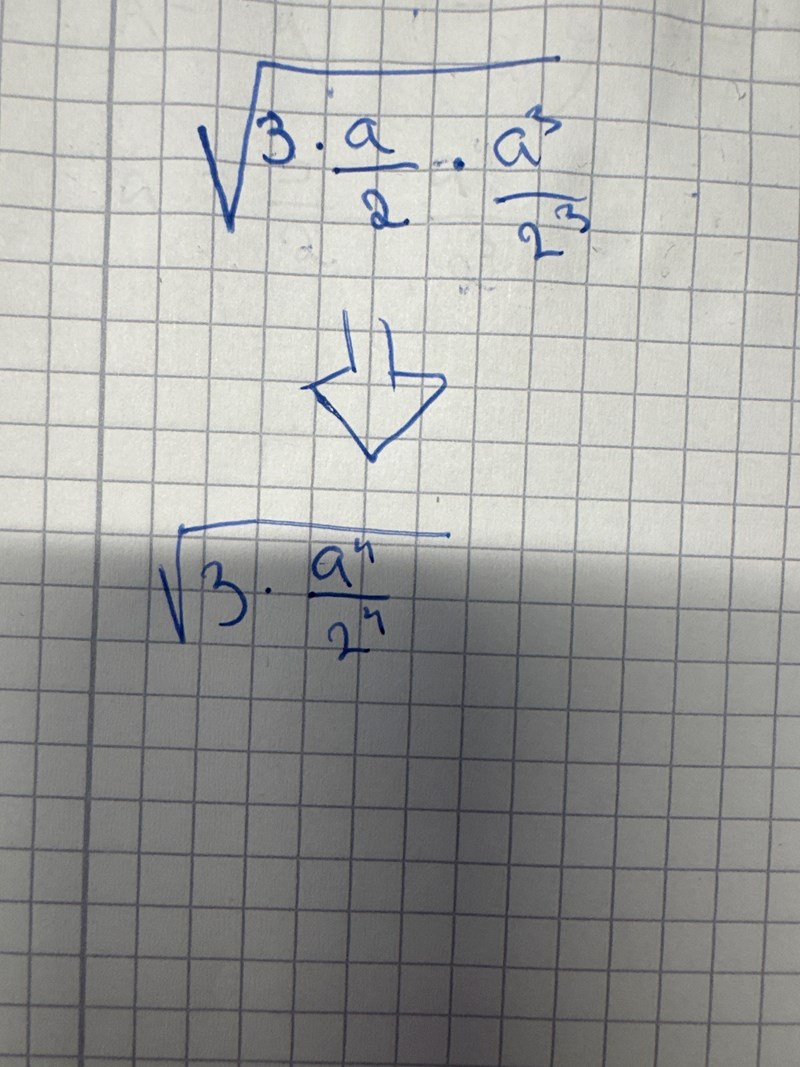 √(3 · a/2 · a³/2³)
√(3 · a⁴/2⁴)